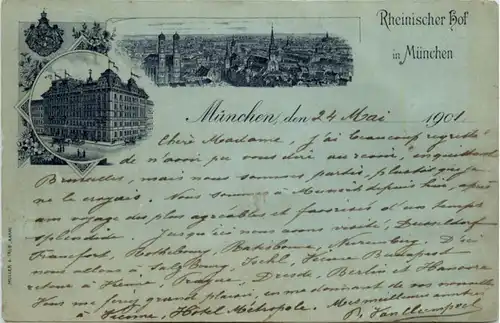 Rheinischer Hof
in München
München, den 24 Mai 1901
Chère Madame, J'ai beaucoup regretté
de n'avoir pu vous dire au revoir, en quittant
Bruxelles, mais nous sommes partis plus tôt que je
ne le croyais. Nous sommes à Munich depuis hier, après
un voyage des plus agréables et favorisé d'un temps
splendide. Jusqu'ici nous avons visité, Dusseldorf
Francfort, Rothebourg, Ratisbonne, Nuremberg. D'ici
nous allons à Salzbourg, Ischl, Vienne Budapest
retour à Vienne, Prague, Dresde, Berlin et Hanovre
Vous me feriez grand plaisir, en me donnant de vos nouvelles
à Vienne, Hôtel Métropole.